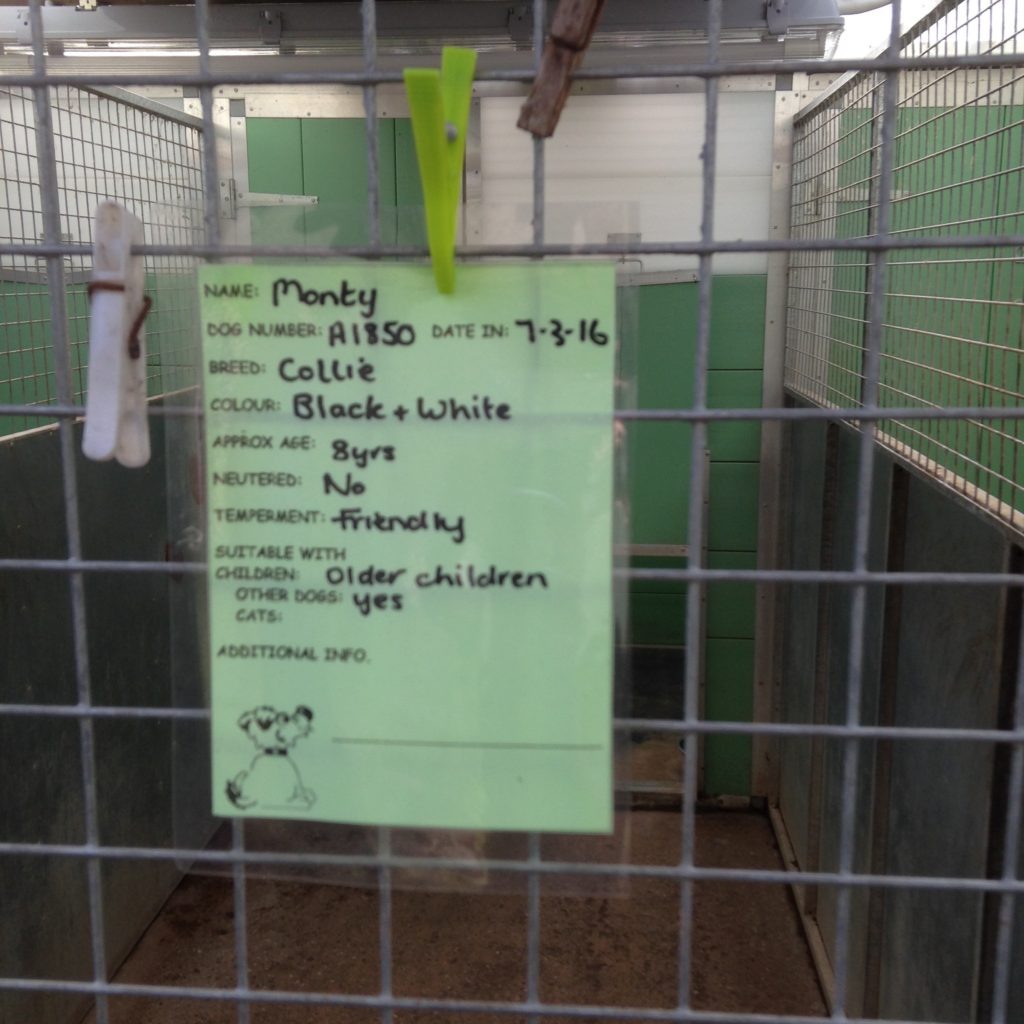 NAME: Monty
DOG NUMBER: A1850 DATE IN: 7-3-16
BREED: Collie
COLOUR: Black + White
APPROX AGE: 8yrs
NEUTERED: No
TEMPERMENT: Friendly
SUITABLE WITH
CHILDREN: Older children
OTHER DOGS: yes
CATS:
ADDITIONAL INFO.